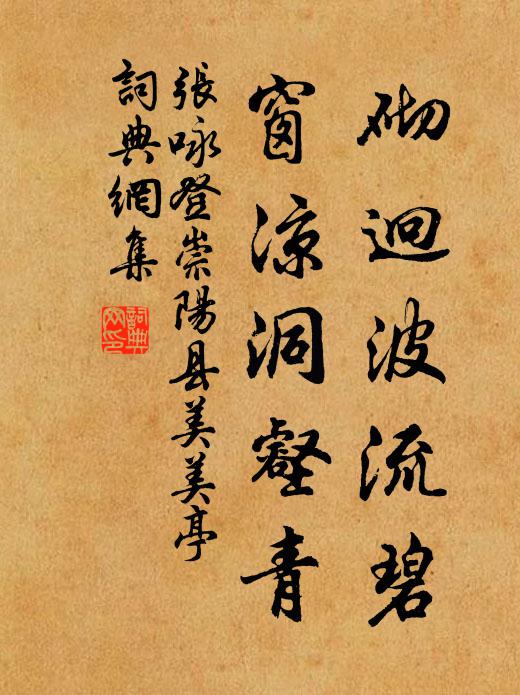 砌迴波流碧
窗涼洞壑青
張咏登崇陽县美美亭
詞典網集
詞典网印